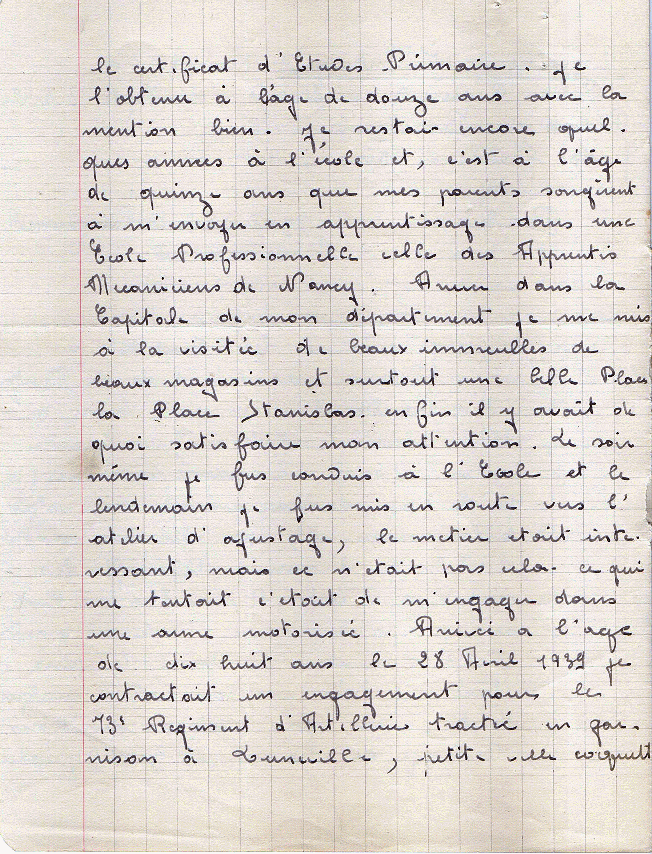 le certificat d'Etudes Primaire. Je
l'obtenu à l'âge de douze ans avec la
mention bien. Je restai encore quel.
ques annees à l'école et, c'est à l'âge
de quinze ans que mes parents songèrent
à m'envoyer en apprentissage dans une
Ecole Professionnelle celle des Apprentis
Mecaniciens de Nancy. Arrivé dans la
Capitale de mon département je me mis
à la visitée de beaux immeubles de
beaux magasins et surtout une belle Place
la Place Stanislas. enfin il y avait de
quoi satisfaire mon attention. Le soir
même je fus conduis à l'Ecole et le
lendemain je fus mis en route vers l'
atelier d'ajustage, le metier etait inte.
ressant, mais ce n'etait pas cela ce qui
me tentait c'etait de m'engager dans
une arme motorisée. Arrivé a l'age
de dix huit ans le 28 Avril 1939 je
contractait un engagement pour le
73e Regiment d'Artillerie tracté en gar.
nison à Luneville, petite ville coquette